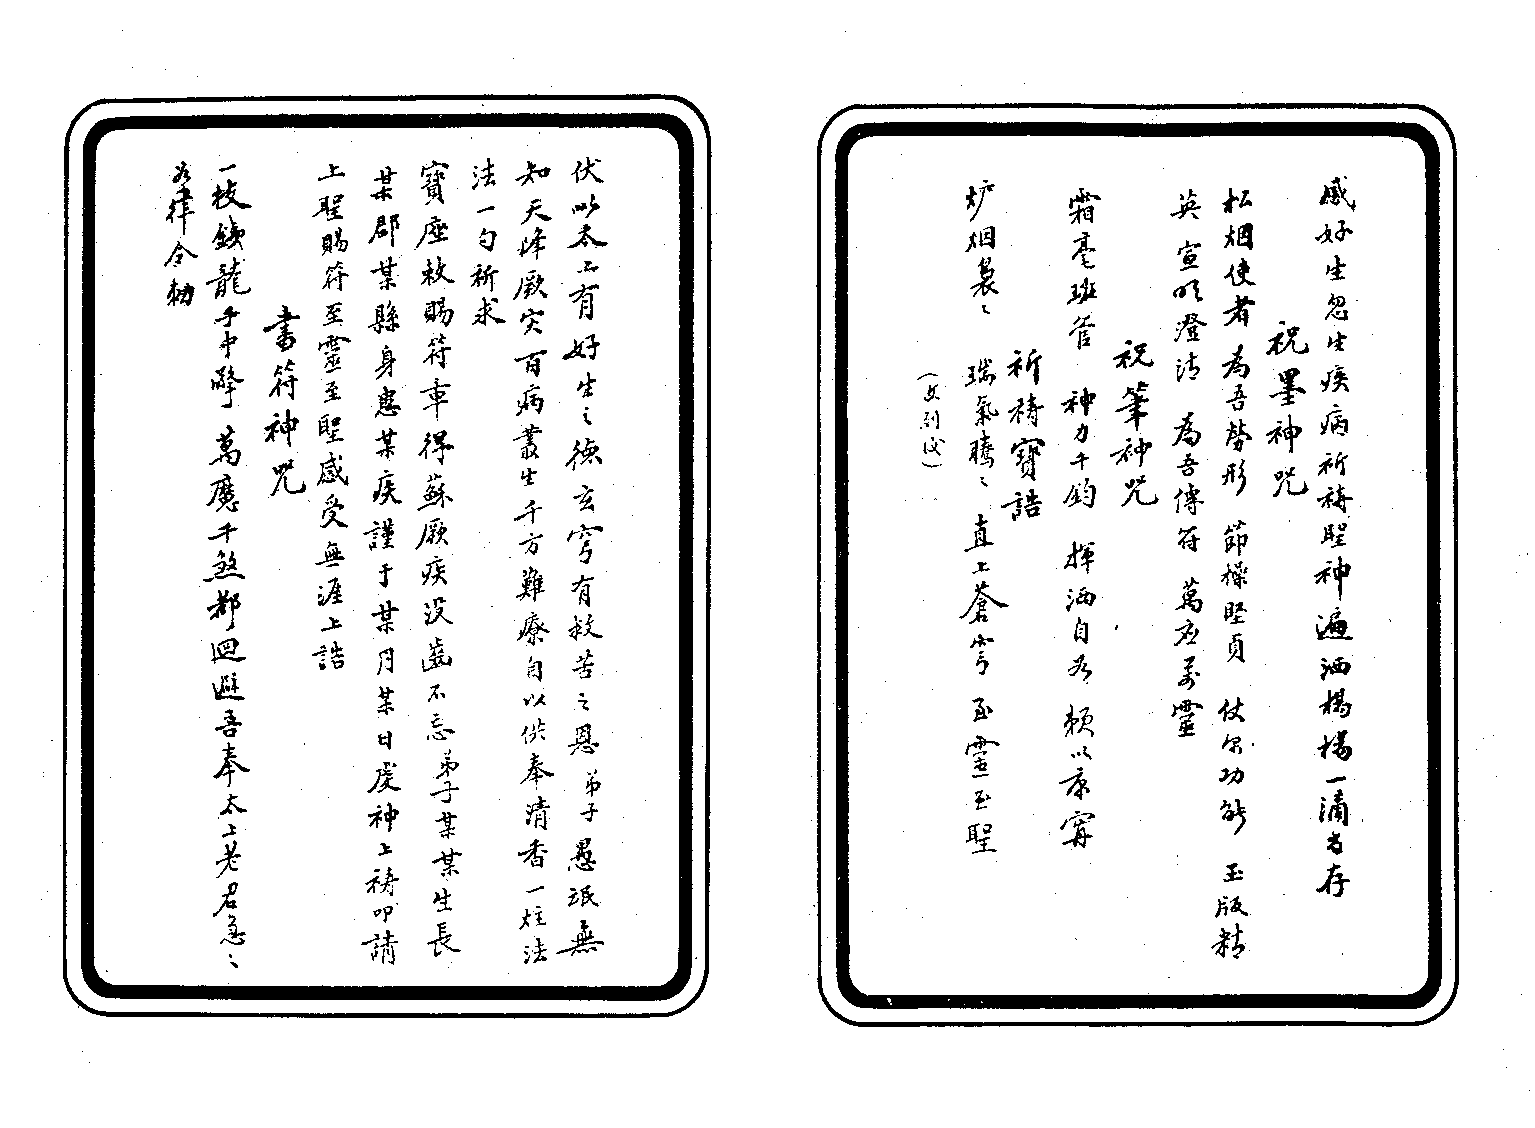 感好生忽生疾病祈禱聖神遍洒楊楊一滴尚存
祝墨神咒
松烟使者 為吾勞形 節操堅貞 仗尔功能 玉版精
英 宣明澄清 為吾傳符 萬应萬靈
祝筆神咒
霜毫班管 神力千鈞 揮洒自如 賴以康寧
祈禱寶誥
炉烟裊〻 瑞氣騰〻 直上蒼穹 至靈至聖
伏以太上有好生之德玄穹有救苦之恩弟子愚氓無
知天降厥灾百病叢生千方難療自以供奉清香一炷法
法一勺祈求
寶座敕賜符車得蘇厥疾没齒不忘弟子某某生長
某郡某縣身患某疾謹于某月某日虔神上禱叩請
上聖賜符至靈至聖感受無涯上誥
書符神咒
一枝鉄龍手中擎萬魔千煞都迴避吾奉太上老君急〻
如律令勅